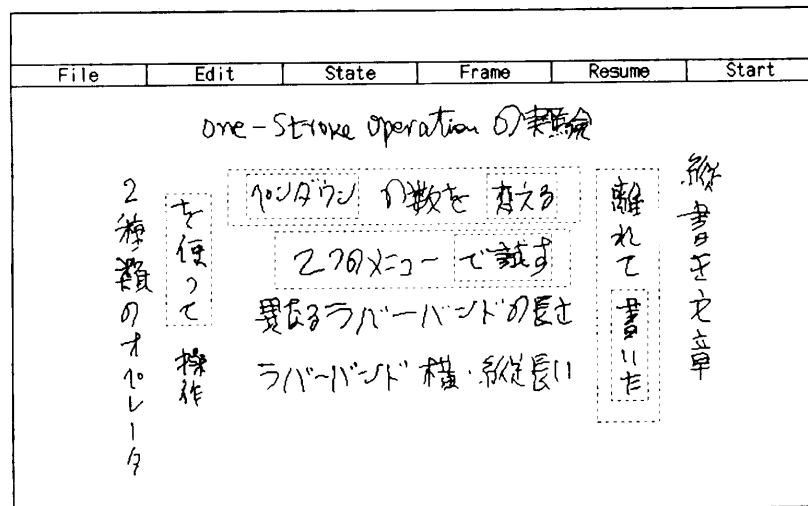 File Edit State Frame Resume Start
one-Stroke operation の実験
ペンダウン の数を 変える
2つのメニュー で試す
異なるラバーバンドの長さ
ラバーバンド 横・縦長い
縦書き文章
離れて書いた
2種類のオペレータ
を使って操作